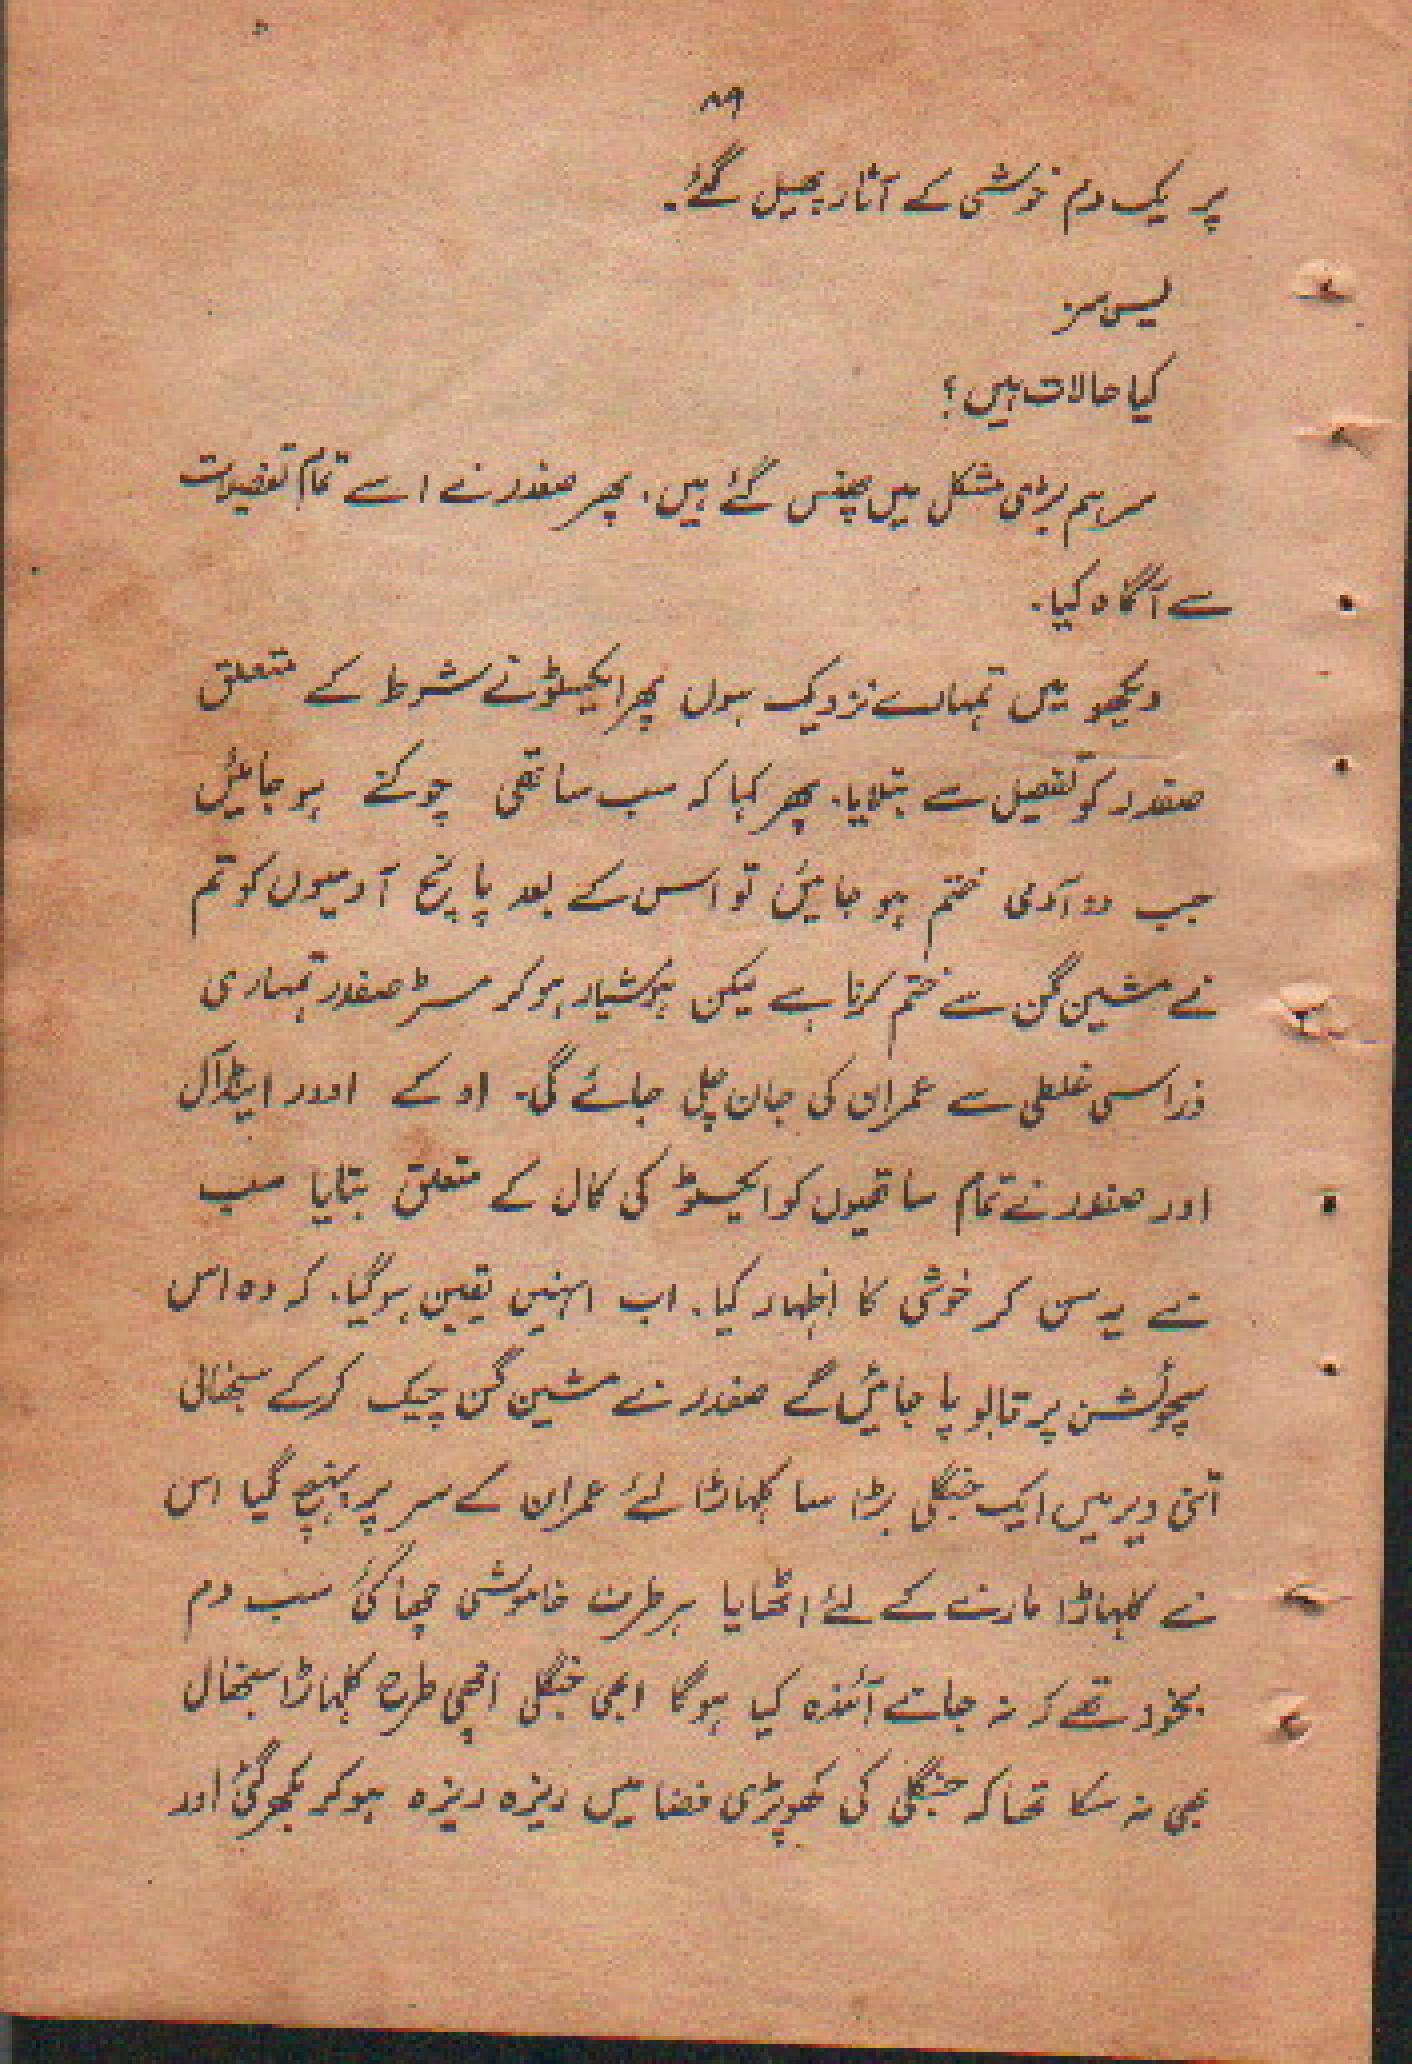 ۸۹
پر یک دم خوشی کے آثار پھیل گئے۔
لیس سر
کیا حالات ہیں؟
سر ہم بڑی مشکل میں پھنس گئے ہیں۔ پھر صفدر نے اسے تمام تفصیلات
سے آگاہ کیا۔
دیکھو میں تمہارے نزدیک ہوں پھر ایکسٹو نے شرط کے متعلق
صفدر کو تفصیل سے بتلایا۔ پھر کہا کہ سب ساتھی چوکنے ہو جائیں
جب دو آدمی ختم ہو جائیں تو اس کے بعد پانچ آدمیوں کو تم
نے مشین گن سے ختم کرنا ہے لیکن ہوشیار ہو کر مسٹر صفدر تمہاری
ذرا سی غلطی سے عمران کی جان چلی جائے گی۔ او کے اوور اینڈ آل
اور صفدر نے تمام ساتھیوں کو ایکسٹو کی کال کے متعلق بتایا سب
نے یہ سن کر خوشی کا اظہار کیا۔ اب انہیں یقین ہو گیا۔ کہ وہ اس
سچوئشن پر قابو پا جائیں گے صفدر نے مشین گن چیک کر کے سنبھالی
اتنی دیر میں ایک جنگلی بڑا سا کلہاڑا لئے عمران کے سر پر پہنچ گیا اس
نے کلہاڑا مارنے کے لئے اٹھایا ہر طرف خاموشی چھا گئی سب دم
بخود تھے کہ نہ جانے آئندہ کیا ہو گا ابھی جنگلی اچھی طرح کلہاڑا سنبھال
بھی نہ سکا تھا کہ جنگلی کی کھوپڑی فضا میں ریزہ ریزہ ہو کر بکھر گئی اور